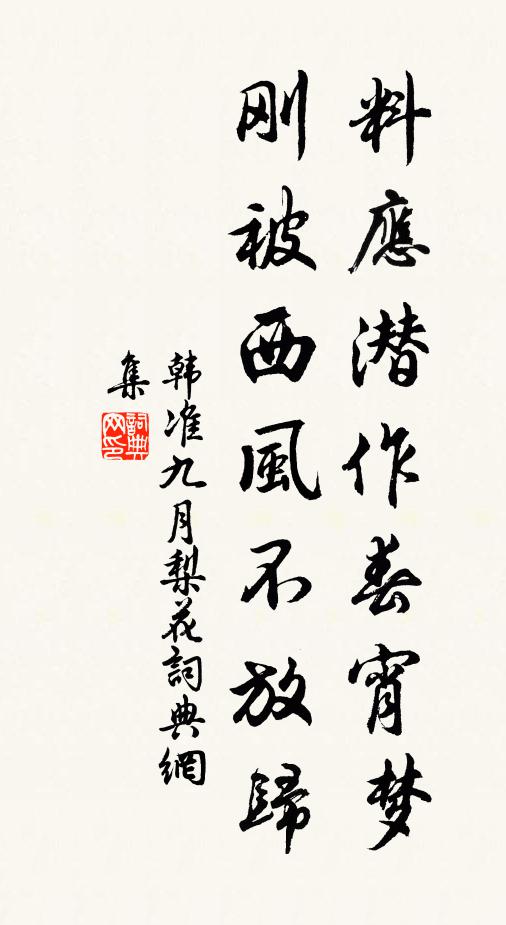 料應潜作春宵梦
刚被西風不放歸
韩准九月梨花詞典網
集
詞典
网印